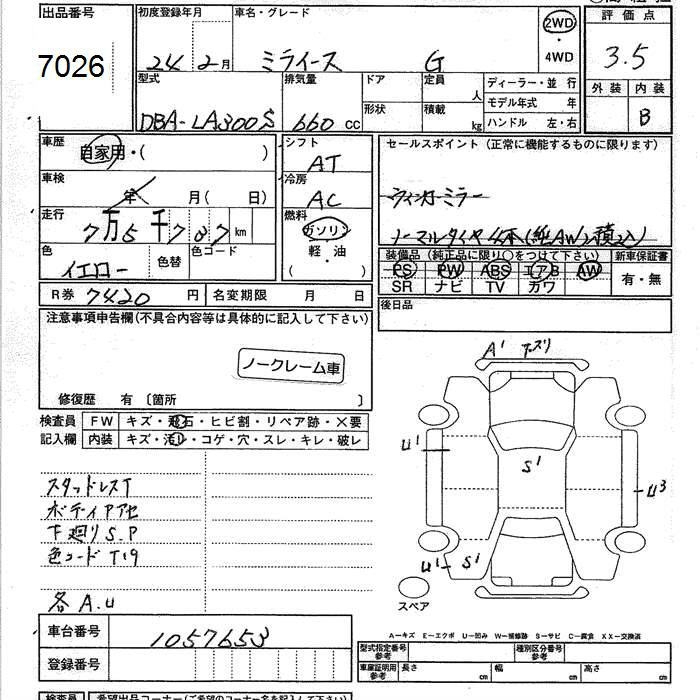 出品番号
7026
初度登録年月
24 2月
車名・グレード
ミライース G
2WD
4WD
評価点
3.5
外装 内装
B
型式
DBA-LA300S
排気量
660 cc
ドア
形状
定員
人
積載
kg
ディーラー・並行
モデル年式 年
ハンドル 左・右
車歴
自家用・( )
車検
年 月( 日)
走行
7万5千787 km
色
イエロー
色替
色コード
シフト
AT
冷房
AC
燃料
ガソリン
(軽・油)
セールスポイント (正常に機能するものに限ります)
ウィンカーミラー
ノーマルタイヤ4本(純AW)積込
装備品 (純正品に限り○をつけて下さい)
PS PW ABS エアB AW
SR ナビ TV カワ
新車保証書
有・無
R券 7420 円
名変期限 月 日
後日品
注意事項申告欄(不具合内容等は具体的に記入して下さい)
ノークレーム車
修復歴 有 〔箇所 〕
検査員
記入欄
FW キズ・飛石・ヒビ割・リペア跡・×要
内装 キズ・汚レ・コゲ・穴・スレ・キレ・破レ
スタッドレスT
ボディP アセ
下廻りS.P
色コード T19
各A.U
A' キズリ
U'
S'
U3
U' S'
スペア
車台番号
1057653
登録番号
A―キズ E―エクボ U―凹み W―補修跡 S―サビ C―腐食 XX―交換済
型式指定番号
参考
種別区分番号
参考
車庫証明用
参考
長さ cm
幅 cm
高さ cm
検査員
希望出品コーナー(ご希望のコーナー名を記入下さい)